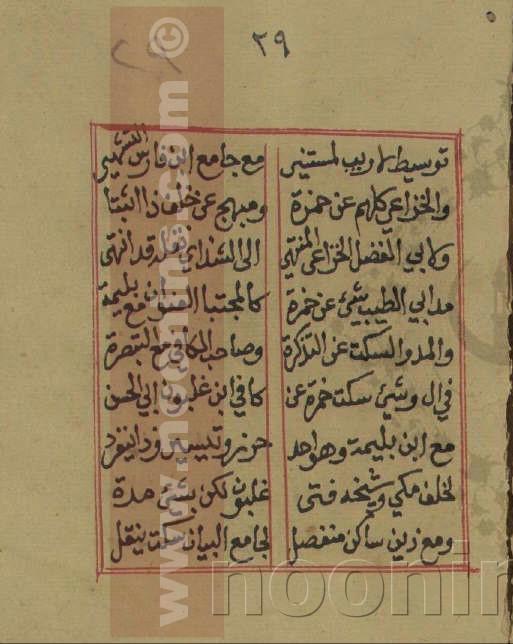 ٢٩
توسيط لا ريب لمستنير مع جامع ابن فارس الشهير
والخزاعي كلهم عن حمزة ومبهج عن خلف ذا اثبتا
وكابي الفضل الخزاعي المنتهي الى الشذاي نقله قد انتهى
مد ابي الطيب شيئ عن حمزة كالمجتبا العنوان مع بليمة
والمد والسكت عن التذكرة وصاحب الكافي مع التبصرة
في ال وشيئ سكت حمزة عن كافي ابن غلبون ابي الحسن
مع ابن بليمة وهو احد حرز وتيسير وذا ينفرد
لخلف مكي وشيخه فتى غلبون لكن بشيئ مدة
ومع زين ساكن منفصل لجامع البيان سكت ينقل
www.noorins.com ©
noorin